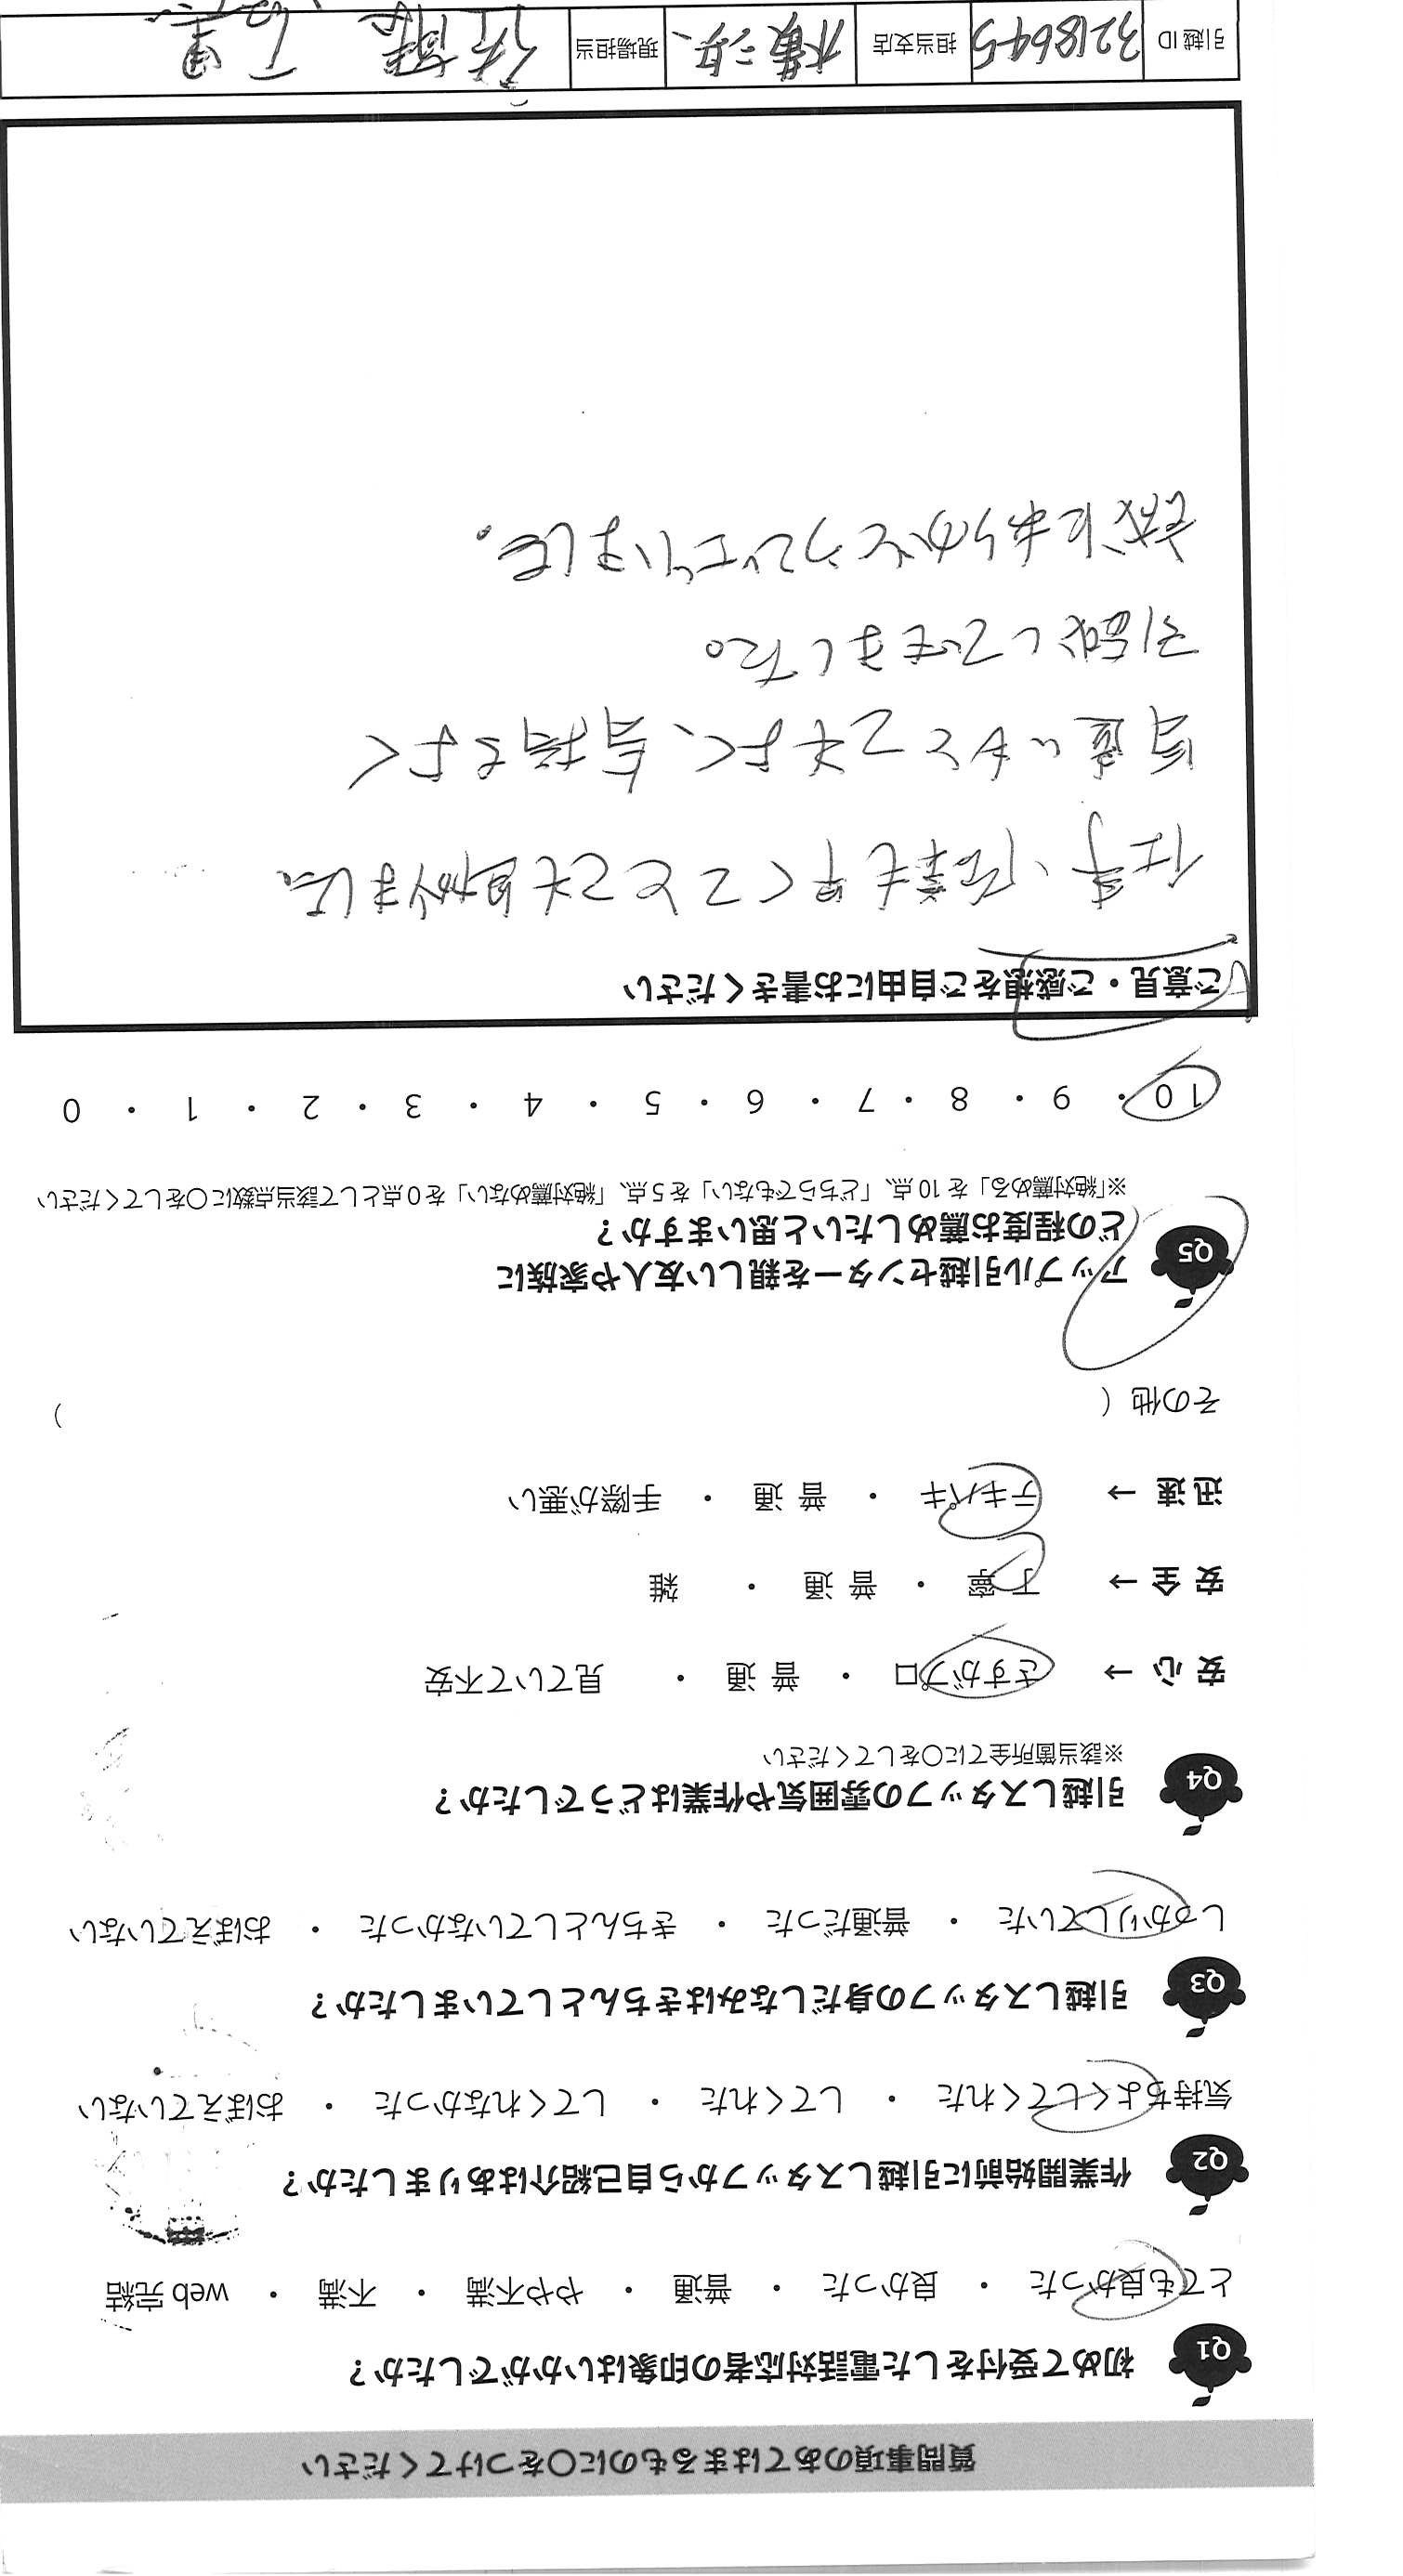 質問事項のあてはまるものに〇をつけてください
Q1 初めて受付をした電話対応者の印象はいかがでしたか？
とても良かった ・ 良かった ・ 普通 ・ やや不満 ・ 不満 ・ web 完結
Q2 作業開始前に引越しスタッフから自己紹介はありましたか？
気持ちよくしてくれた ・ してくれた ・ してくれなかった ・ おぼえていない
Q3 引越しスタッフの身だしなみはきちんとしていましたか？
しっかりしていた ・ 普通だった ・ きちんとしていなかった ・ おぼえていない
Q4 引越しスタッフの雰囲気や作業はどうでしたか？
※該当箇所全てに〇をしてください
安 心 → さすがプロ ・ 普 通 ・ 見ていて不安
安 全 → 丁 寧 ・ 普 通 ・ 雑
迅 速 → テキパキ ・ 普 通 ・ 手際が悪い
その他（ ）
Q5 アップル引越センターを親しい友人や家族に
どの程度お薦めしたいと思いますか？
※「絶対薦める」を 10 点、「どちらでもない」を 5 点、「絶対薦めない」を 0 点として該当点数に〇をしてください
10 ・ 9 ・ 8 ・ 7 ・ 6 ・ 5 ・ 4 ・ 3 ・ 2 ・ 1 ・ 0
ご意見・ご感想をご自由にお書きください
仕事、作業も早くてとても助かりました
も良く、気持ちよく
引越しできました。
誠にありがとうございました。
引越 ID 3218645 担当支店 横浜 現場担当 佐藤